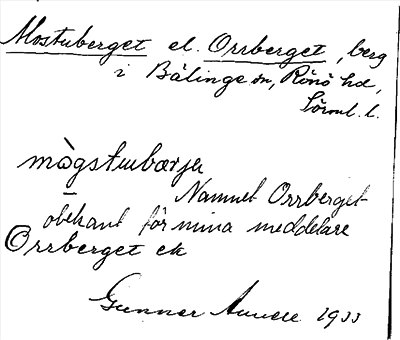 Mostuberget el. Orrberget, berg
i Bälinge sn, Rönö hd,
Sörml. l.
Namnet Orrberget
obekant för mina meddelare
Orrberget ek
Gunnar 1933